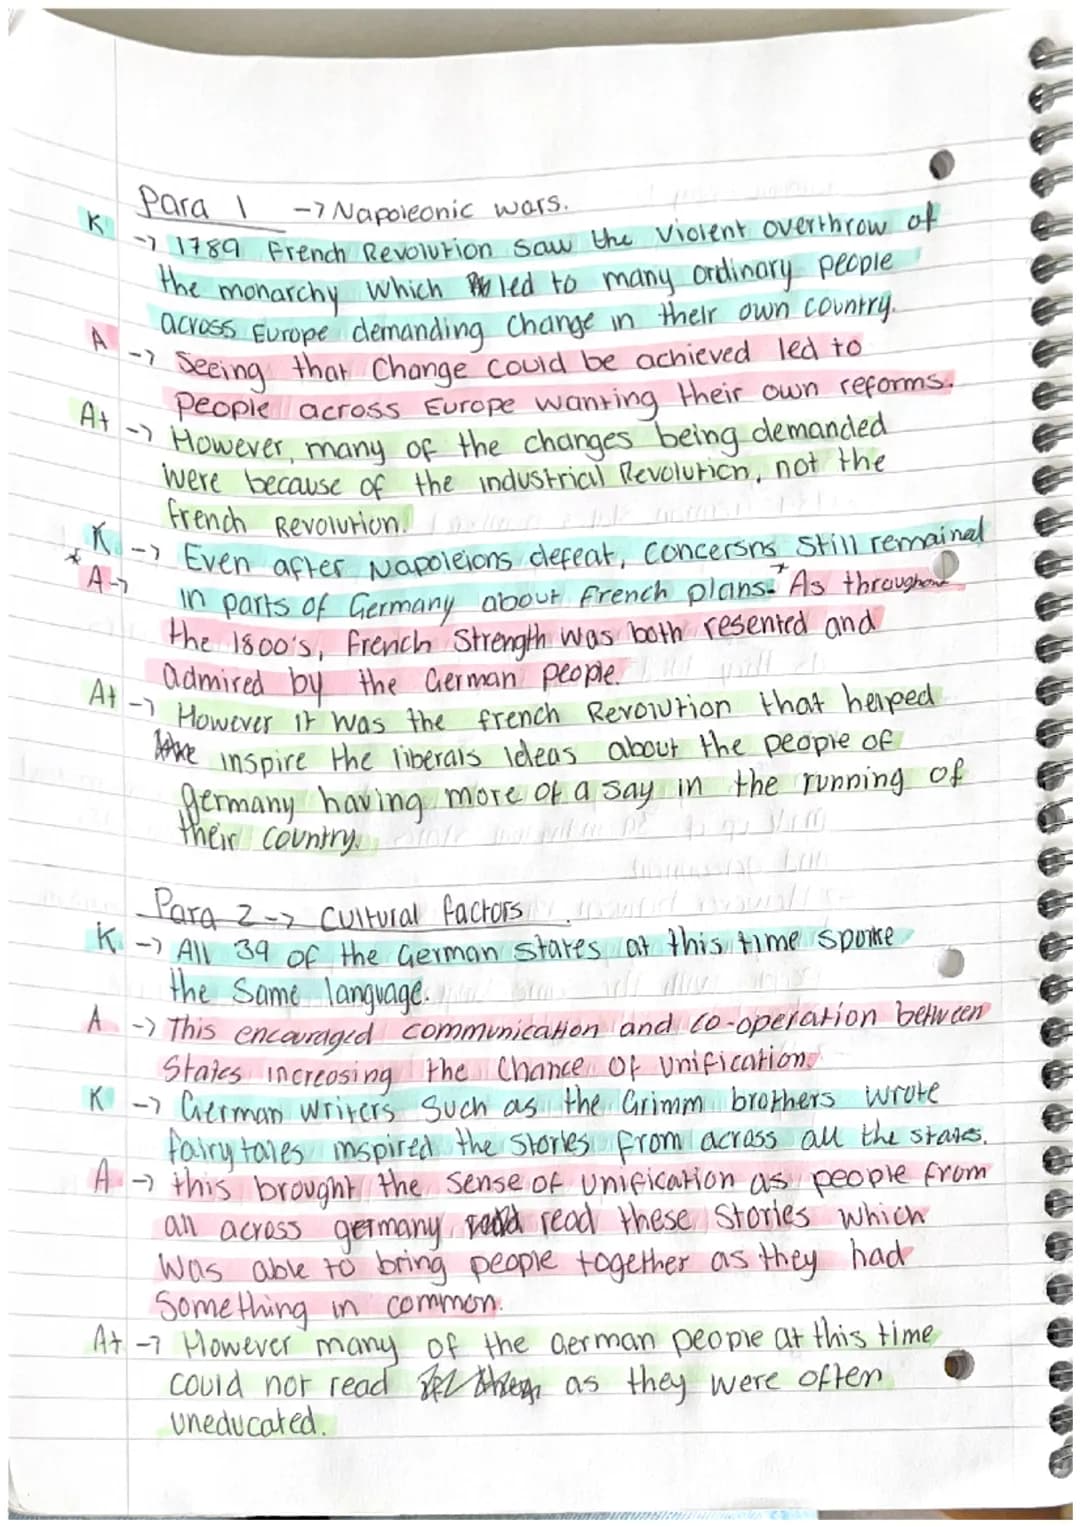 Para 1 -> Napoleonic wars.
K -> 1789 French Revolution saw the violent overthrow of
the monarchy which led to many ordinary people
across Europe demanding Change in their own country.
A -> Seeing that Change could be achieved led to
people across Europe wanting their own reforms.
A+ -> However, many of the changes being demanded
were because of the industrial Revolution, not the
french Revolution.
K -> Even after Napoleions defeat, concersns still remained
* A -> in parts of Germany about french plans. * As throughout
the 1800's, french Strength was both resented and
admired by the German people.
A+ -> However it was the french Revolution that helped
inspire the liberals Ideas about the people of
germany having more of a say in the running of
their country.
Para 2 -> Cultural factors
K -> All 39 of the German States at this time spoke
the same language.
A -> This encouraged communication and co-operation between
States increasing the Chance of unification.
K -> German writers Such as the Grimm brothers wrote
fairytales inspired the stories from across all the states.
A -> this brought the sense of unification as people from
all across germany read these Stories which
was able to bring people together as they had
Something in common.
A+ -> However many of the German people at this time
could not read as they were often
uneducated.